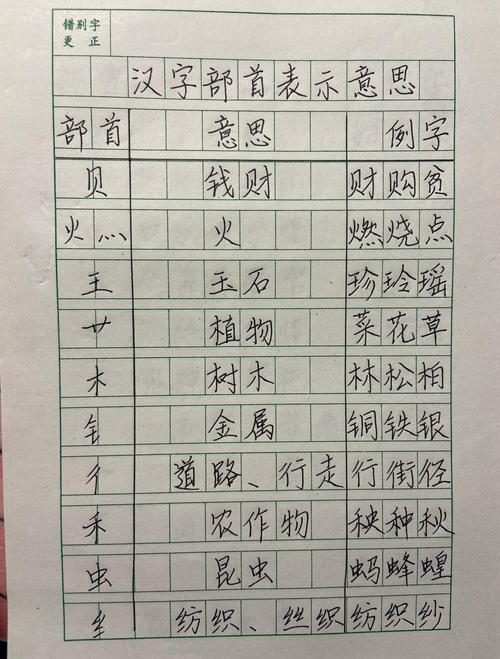 错别字
更 正
汉字部首表示意思
部首 意思 例字
贝 钱财 财购贫
火灬 火 燃烧点
王 玉石 珍玲瑶
艹 植物 菜花草
木 树木 林松柏
钅 金属 铜铁银
彳 道路、行走 行街径
禾 农作物 秧种秋
虫 昆虫 蚂蜂蝗
纟 纺织、丝织 纺织纱